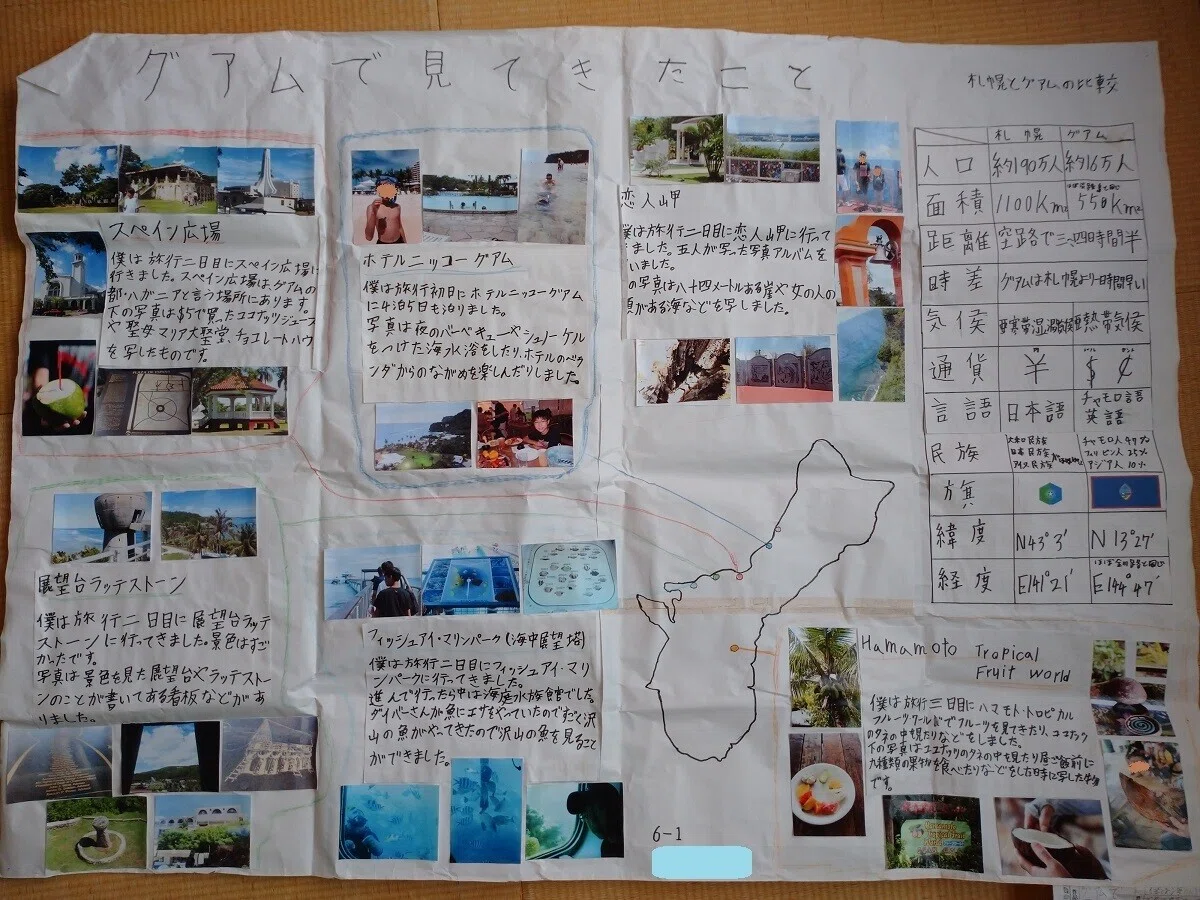 グアムで見てきたこと
スペイン広場
僕は旅行二日目にスペイン広場に
行きました。スペイン広場は、グアムの
都・ハガニアと言う場所にあります。
下の写真は$5で買ったココナッツジュース
や聖母マリア大聖堂、チョコレートハウ
を写したものです。
ホテルニッコーグアム
僕は旅行初日にホテルニッコーグアム
に4泊5日も泊りました。
写真は夜のバーベキューやシュノーケル
をつけた海水浴をしたり、ホテルのベラ
ンダからのながめを楽しんだりしました。
恋人山甲
僕は旅行二日目に恋人山甲に行って
きました。五人が写った写真アルバムを
いました。
の写真は八十四メートルある崖や女の人の
顔がある海などを写しました。
札幌とグアムの比較
札幌 グアム
人口 約190万人 約16万人
面積 1100Km² 550Km²
距離 空路で三、四時間半
時差 グアムは札幌より一時間早い
気候 亜熱帯気候
通貨 ¥ $ ¢
言語 日本語 チャモロ語
英語
民族 大和民族 チャモロ人 47%
アイヌ民族 フィリピン人 25%
アジア人 10%
旗
緯度 N43°3′ N13°27′
経度 E141°21′ E144°47′
展望台ラッテストーン
僕は旅行二日目に展望台ラッテ
ストーンに行ってきました。景色はすご
かったです。
写真は景色を見た展望台やラッテストー
ンのことが書いてある看板などがあ
りました。
フィッシュアイ・マリンパーク(海中展望塔)
僕は旅行二日目にフィッシュアイ・マリ
ンパークに行ってきました。
進んで行ったら中は海底水族館でした。
ダイバーさんが魚にエサをやっていたのでたく沢
山の魚がやってきたので沢山の魚を見ること
ができました。
Hamamoto Tropical
Fruit World
僕は旅行三日目にハマモト・トロピカル
フルーツワールドでフルーツを見てきたり、ココナッツ
のタネの中見たりなどをしました。
下の写真はココナッツのタネの中を見たり昼ご飯前に
九種類の果物を食べたりなどをした時に写した物
です。
6-1